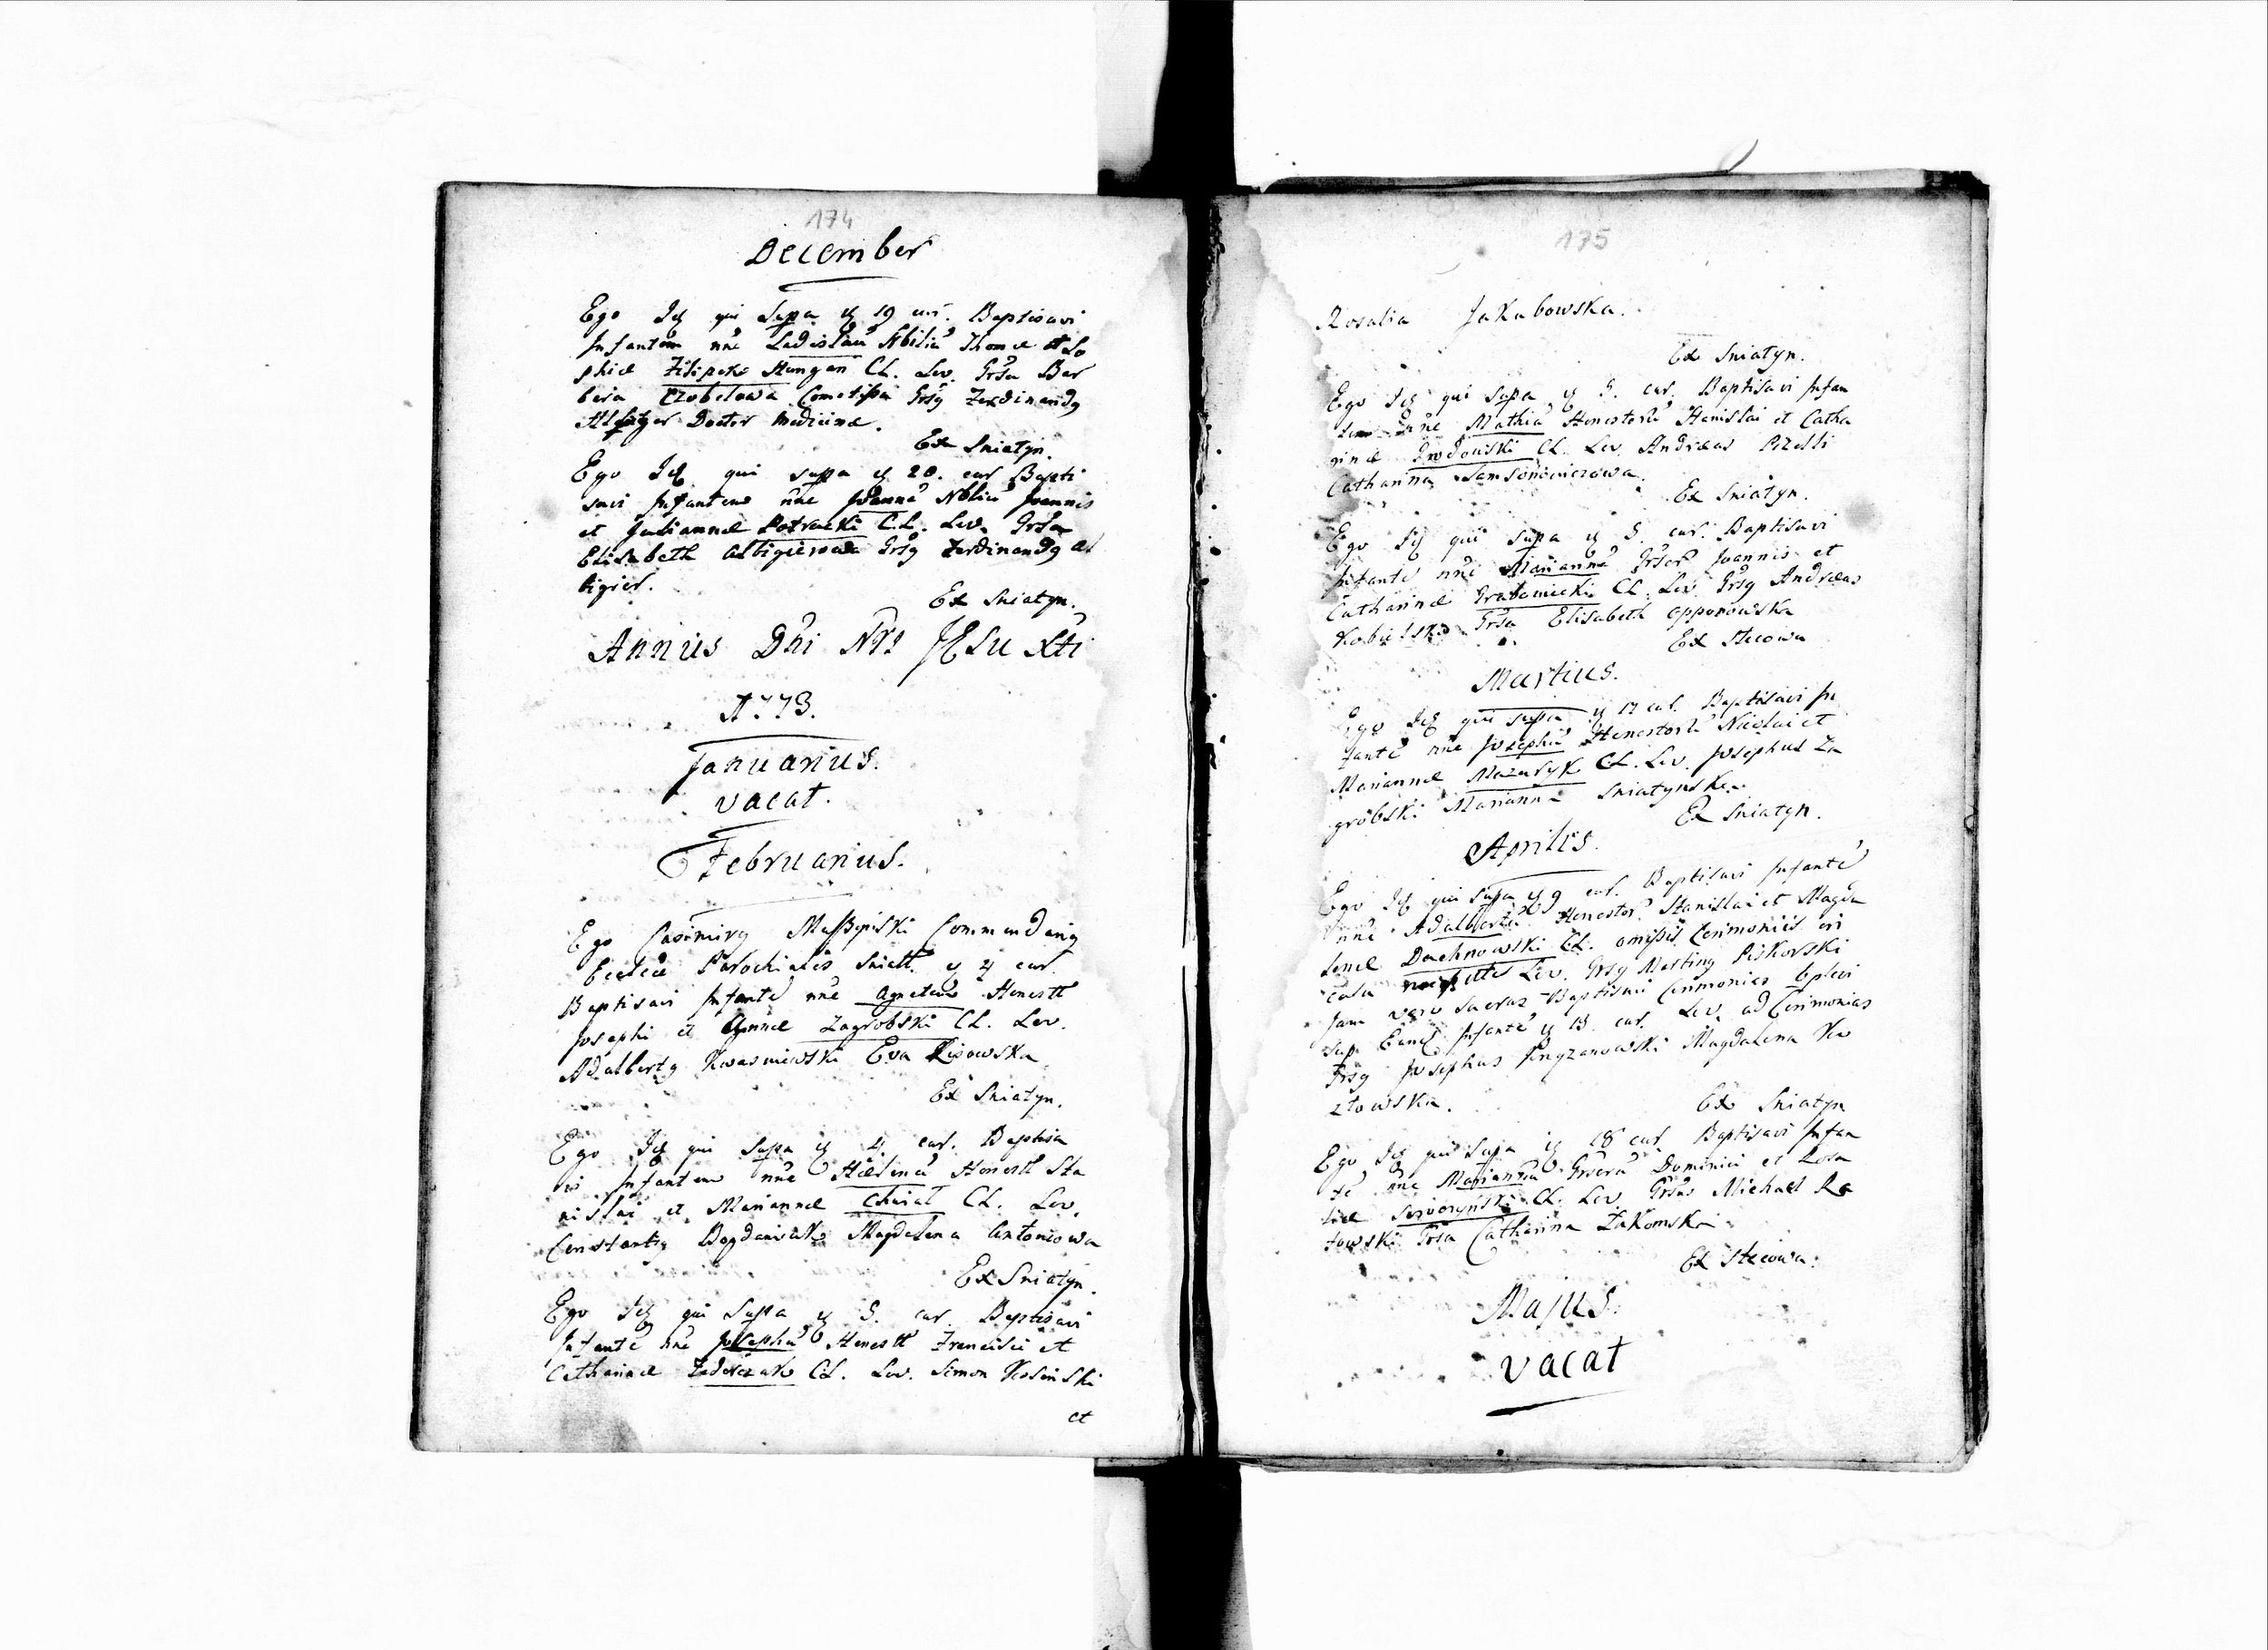 174
December
Ego Idq qui supa q 19 cur. Baptisavi
Infantem nne Ladislau Nbiliu Thomæ et So
phiæ Filipeki Hungan CL. Lev. Grsa Bar
bara Czobelowa Cometissa Grsq Ferdinandq
Doctor Medicinæ.
Ex Sniatyn.
Ego Idq qui supa q 20. cur Bapti
savi Infantem nne Joanne Nbliu Joannis
et Juliannæ CL. Lev. Grsa
Elisabeth Albigierowa Grsq Ferdinandq Al
bigier.
Ex Sniatyn.
Annus Dni Nri JESu Xti
1773.
Januarius.
vacat.
Februarius.
Ego Casimirq Commendariq
Ecclæ Parochialis Sniatt. q 4 cur.
Baptisavi Infante nne Agnetem Honestt
Josephi et Annæ Zagrobski CL. Lev.
Adalbertq Kwasniewski Eva Lisowska
Ex Sniatyn.
Ego Idq qui supa q 4. cur. Baptisa
vi Infantem nne Honestt Sta
nislai et Mariannæ CL. Lev.
Constantiq Bogdaniak Magdalena Antoniowa
Ex Sniatyn.
Ego Idq qui supa q 5. cur. Baptisavi
Infante nne Josephu Honestt Francisci et
Catharinæ CL. Lev. Simon Kosinski
et
175
Rosalia Jakubowska.
Ex Sniatyn.
Ego Idq qui supa q 5. cur. Baptisavi Infan
tem nne Mathia Honestoru Stanislai et Catha
rinæ Grodowski CL. Lev. Andræas
Catharina Samsonowiczowa.
Ex Sniatyn.
Ego Idq qui supa q 5. cur. Baptisavi
Infante nne Marianna Grsor Joannis et
Catharinæ CL. Lev. Grsq Andræas
Kobielski Grsa Elisabeth Opponowska
Ex Stecowa
Martius.
Ego Idq qui supa q 17 cur. Baptisavi In
fante nne Josephu Honestoru Nicolai et
Mariannæ Mazuryk CL. Lev. Josephus Za
grobski Marianna Sniatynska.
Ex Sniatyn.
Aprilis.
Ego Idq qui supa q 9 cur. Baptisavi Infante
nne Adalbertu Honestor. Stanislai et Magda
lenæ Duchnowski CL. omissis Cerimoniis in
casu Lev. Grsq Martinq Piskorski
jam vero sacras Baptismi Cerimonias Eplevi
sup. Eund Infante q 13. cur. Lev. ad Cerimonias
Grsq Josephus Magdalena Ko
zlowska.
Ex Sniatyn
Ego Idq qui supa q 18 cur. Baptisavi Infan
te nne Marianna Grsoru Dominici et Rosa
liæ CL. Lev. Grsus Michael Ra
towski Grsa Catharina Zakomska
Ex Stecowa.
Majus.
vacat